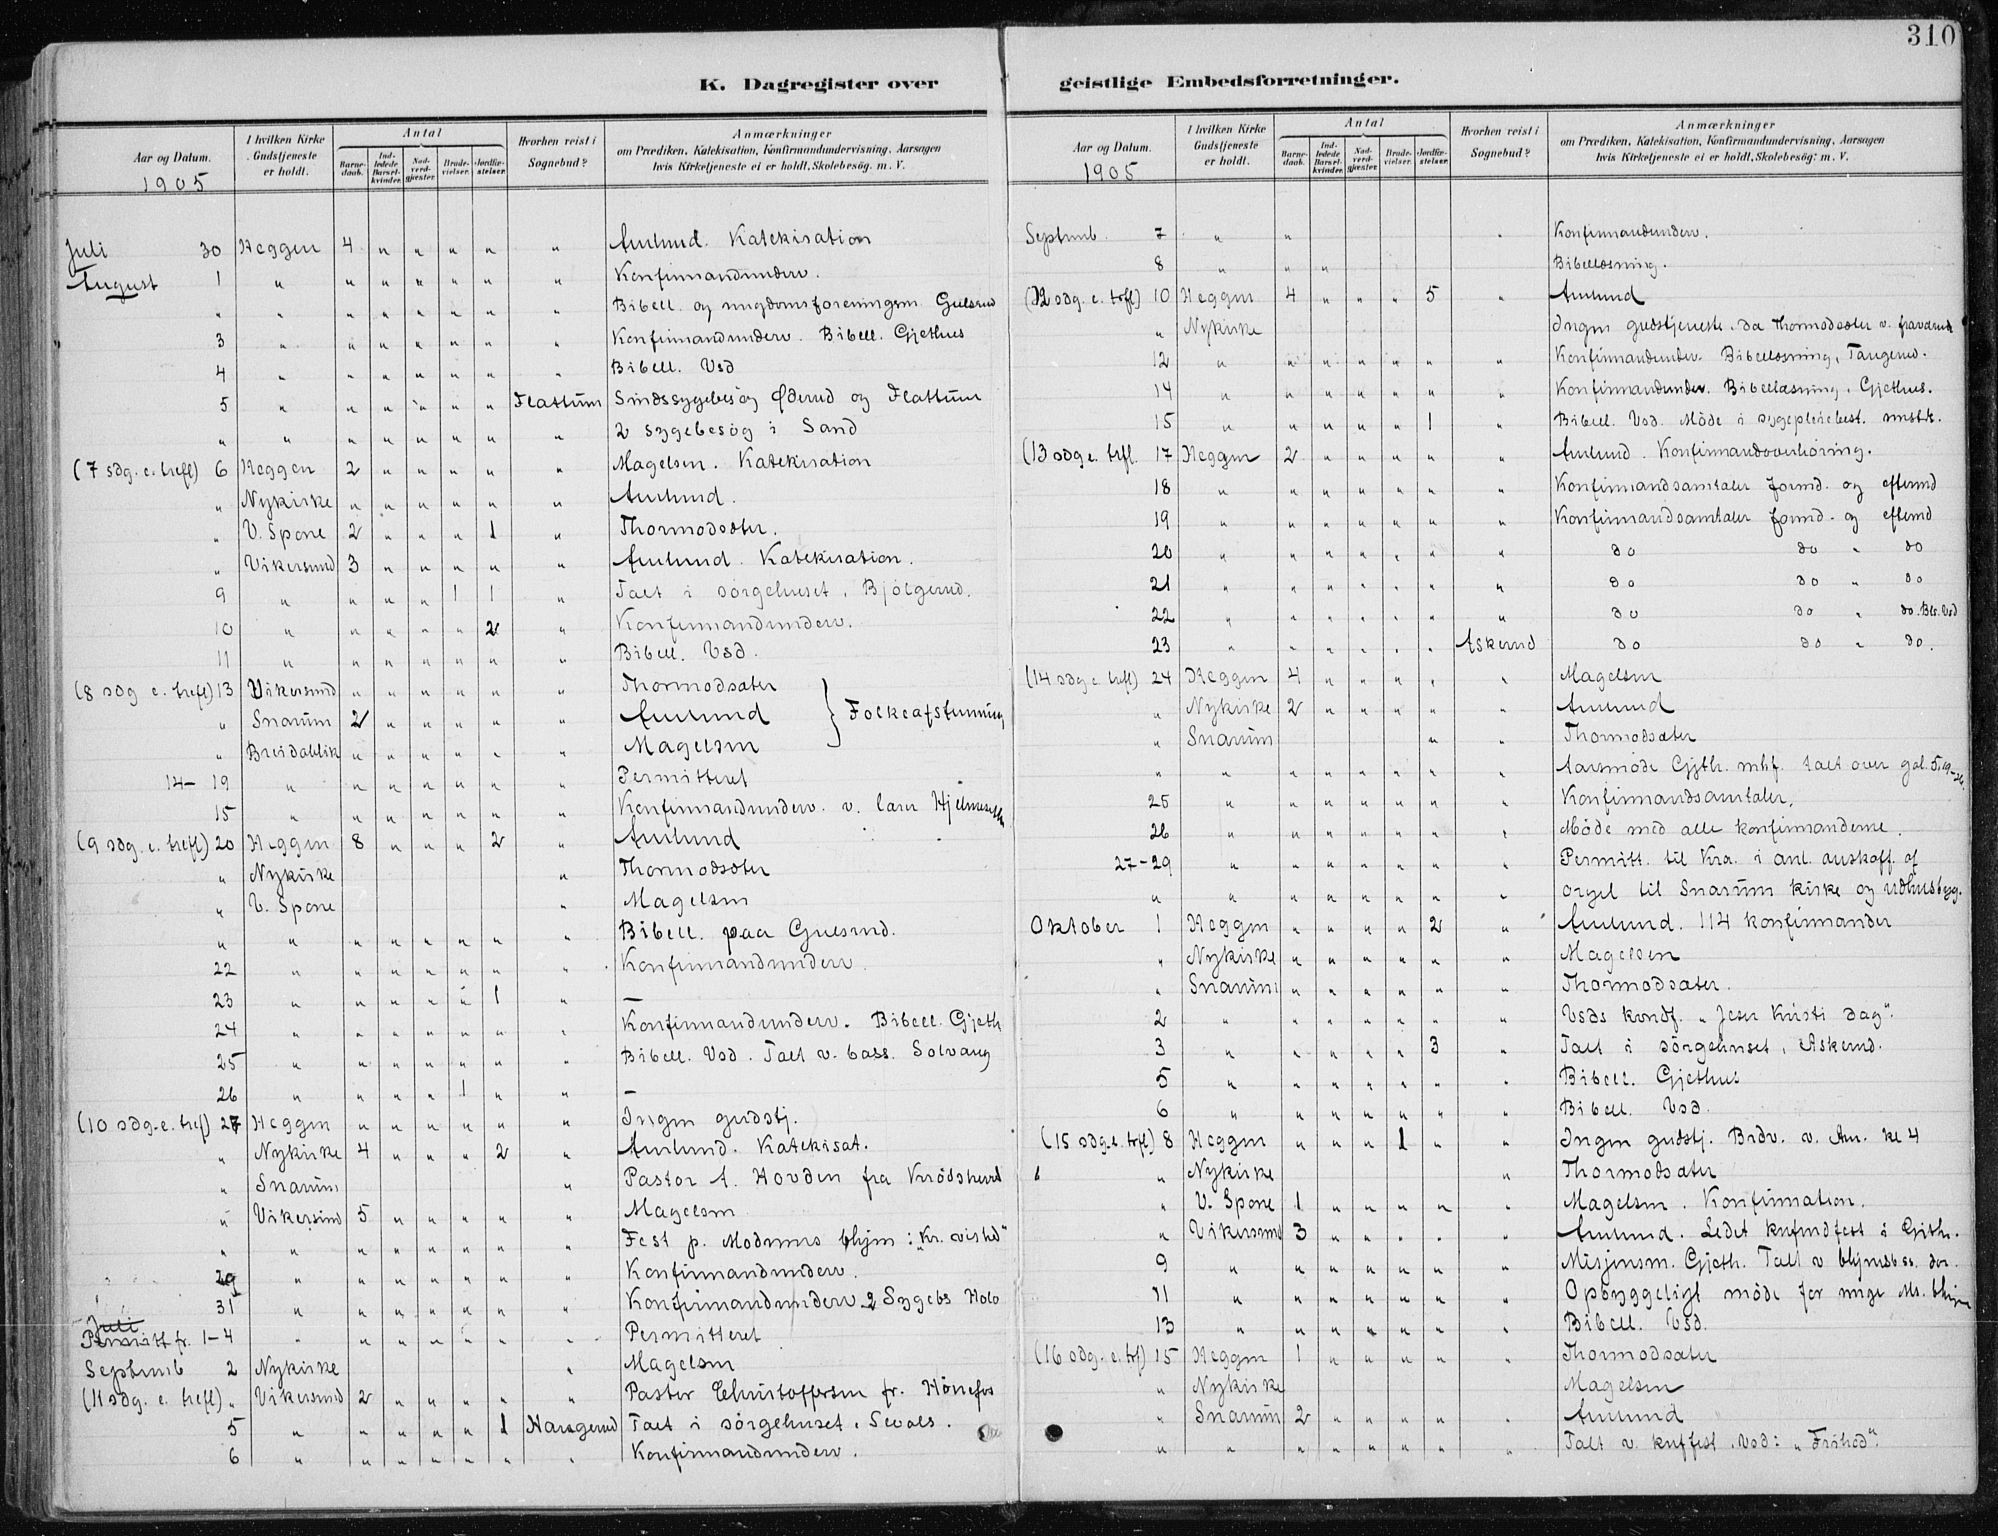 310
K. Dagregister over geistlige Embedsforretninger.
Aar og Datum. 1905
I hvilken Kirke Gudstjeneste er holdt.
Antal
Barnedaab. Indledede Barselkvinder. Nadverdgjæster. Brudevielser. Jordfæstelser.
Hvorhen reist i Sognebud?
Anmærkninger om Prædiken, Katekisation, Konfirmandundervisning, Aarsagen hvis Kirketjeneste ei er holdt, Skolebesøg. m. V.
Juli 30 Heggen 4 " " " " " Amlund. Katekisation
August 1 " " " " " " " Konfirmandunderv.
" " " " " " " " Bibell. og ungdomsforeningsm. Gulsrud
3 " " " " " " " Konfirmandunderv. Bibell. Gjethus
4 " " " " " " " Bibell. Vsd
5 " " " " " " Flattum Sindssygebesøg Øderud og Flattum
" " " " " " " " 2 sygebesøg i Sand
(7 sdg. e. trefl) 6 Heggen 2 " " " " " Magelsen. Katekisation
" Nykirke " " " " " " Amlund.
" V. Spone 2 " " " 1 " Thormodsæter.
" Vikersund 3 " " " " " Amlund. Katekisation.
9 " " " " 1 1 " Talt i sørgehuset, Bjølgerud.
10 " " " " " 2 " Konfirmandunderv.
11 " " " " " " " Bibell. Vsd.
(8 sdg e. trefl) 13 Vikersund " " " " " " Thormodsæter
" Snarum 2 " " " " " Amlund } Folkeafstemning
" Breidablik " " " " " " Magelsen
14-19 " " " " " " " Permitteret
15 " " " " " " " Konfirmandunderv. v. lærer
(9 sdg. e. trefl) 20 Heggen 8 " " " 2 " Amlund
" Nykirke " Thormodsæter
" V. Spone " Magelsen
" " " " " " " " Bibell. paa Gulsrud.
22 " " " " " " " Konfirmandunderv.
23 " " " " " 1 " —
24 " " " " " " " Konfirmandunderv. Bibell. Gjeth
25 " " " " " " " Bibell. Vsd. Talt v. bass. Solvang
26 " " " " 1 " " —
(10 sdg. e. tref) 27 Heggen " " " " " " Ingen gudstj.
" Nykirke 4 " " " 2 " Amlund. Katekisat.
" Snarum " Pastor A. Hovden fra Krødsherred
" Vikersund 5 " " " " " Magelsen
" " " " " " " " Fest p. Modums blhjem: "Kr. vished"
29 " " " " " " " Konfirmandunderv.
31 " " " " " " " Konfirmandunderv. 2 Sygebs Holo
Juli
Permitt fr. 1-4 " " " " " " " Permitteret
Septemb 2 Nykirke " Magelsen
(11 sdg. e. trefl) " Vikersund 2 " " " " " Pastor Christoffersen fr. Hønefos
5 " " " " " 1 Haugerud Talt i sørgehuset,
6 " " " " " " " Konfirmandunderv.
Aar og Datum. 1905
I hvilken Kirke Gudstjeneste er holdt.
Antal
Barnedaab. Indledede Barselkvinder. Nadverdgjæster. Brudevielser. Jordfæstelser.
Hvorhen reist i Sognebud?
Anmærkninger om Prædiken, Katekisation, Konfirmandundervisning, Aarsagen hvis Kirketjeneste ei er holdt, Skolebesøg: m. V.
Septemb. 7 " " " Konfirmandunderv.
8 " " " Bibellæsning.
(12 sdg. e. trfl) 10 Heggen 4 " " " 5 " Amlund
" Nykirke Ingen gudstjeneste, da Thormodsæter v. fraværende
12 " " " " " " " Konfirmandunderv. Bibellæsning, Tangerud.
14 " " " " " " " Konfirmandunderv. Bibellæsning, Gjethus.
15 " " " " " 1 " Bibell. Vsd. Møde i sygepleiebest.
(13 sdg e. trfl. 17 Heggen 2 " " " " " Amlund. Konfirmandoverhøring.
18 " " " " " " " Konfirmandsamtaler formd. og eftermd
19 " " " " " " " Konfirmandsamtaler formd. og eftermd
20 " " " " " " " do do " do
21 " " " " " " " do do " do
22 " " " " " " " do do " do. Bls. Vsd
23 " " " " " " Askerud do do " do.
(14 sdg. e. trefl) 24 Heggen 4 " " " " " Magelsen
" Nykirke 2 " " " " " Amlund
" Snarum " " Thormodsæter
" " " " " " " " Aarsmøde Gjeth. mhf. talt over gal. 5,19-24.
25 " " " " " " " Konfirmandsamtaler.
26 " " " " " " " Møde med alle konfirmanderne.
27-29 " " " " " " " Permitt. til Kra. i anl. anskaff. af
" " " " " " " " orgel til Snarum kirke og udhusbygg.
Oktober 1 Heggen " " " " 2 " Amlund. 114 konfirmander
" Nykirke " " " " " " Magelsen
" Snarum " " " " " " Thormodsæter.
2 " " " " " " " Vsds kvndf. "Jesu Kristi dag".
3 " " " " " 3 " Talt i sørgehuset, Askerud.
5 " " " " " " " Bibell. Gjethus
6 " " " " " " " Bibell. Vsd.
(15 sdg. e. trefl) 8 Heggen " " " 1 " " Ingen gudstj. Brdv. v. Am. kl 4
" Nykirke " Thormodsæter
" V. Spone 1 " " " " " Magelsen. Konfirmation.
" Vikersund 3 " " " " " Amlund. Ledet i Gjeth.
9 " " " " " " " Misjonsm. Gjeth. Talt v
11 " " " " " " " Opbyggeligt møde for unge Ms. blhjem
13 " " " " " " " Bibell. Vsd.
(16 sdg. e. trf) 15 Heggen 1 " " " " " Thormodsæter
" Nykirke Magelsen
" Snarum 2 " " " " " Amlund
" " " " " " " " Talt v. knffest. Vsd: "Frihed".